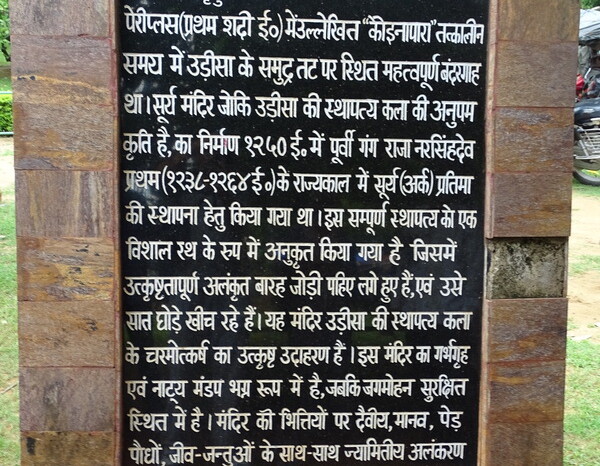 पेरीप्लस(प्रथम शदी ई०) में उल्लेखित "कोइनापारा" तत्कालीन
समय में उड़ीसा के समुद्र तट पर स्थित महत्वपूर्ण बंदरगाह
था। सूर्य मंदिर जोकि उड़ीसा की स्थापत्य कला की अनुपम
कृति है, का निर्माण १२५० ई० में पूर्वी गंग राजा नरसिंहदेव
प्रथम(१२३८-१२६४ ई०) के राज्यकाल में सूर्य (अर्क) प्रतिमा
की स्थापना हेतु किया गया था। इस सम्पूर्ण स्थापत्य को एक
विशाल रथ के रुप में अनुकृत किया गया है जिसमें
उत्कृष्टतापूर्ण अलंकृत बारह जोड़ी पहिए लगे हुए हैं, एवं उसे
सात घोड़े खींच रहे हैं। यह मंदिर उड़ीसा की स्थापत्य कला
के चरमोत्कर्ष का उत्कृष्ट उदाहरण हैं। इस मंदिर का गर्भगृह
एवं नाट्य मंडप भग्न रूप में है, जबकि जगमोहन सुरक्षित
स्थिति में है। मंदिर की भित्तियों पर दैवीय, मानव, पेड़
पौधों, जीव-जन्तुओं के साथ-साथ ज्यामितीय अलंकरण